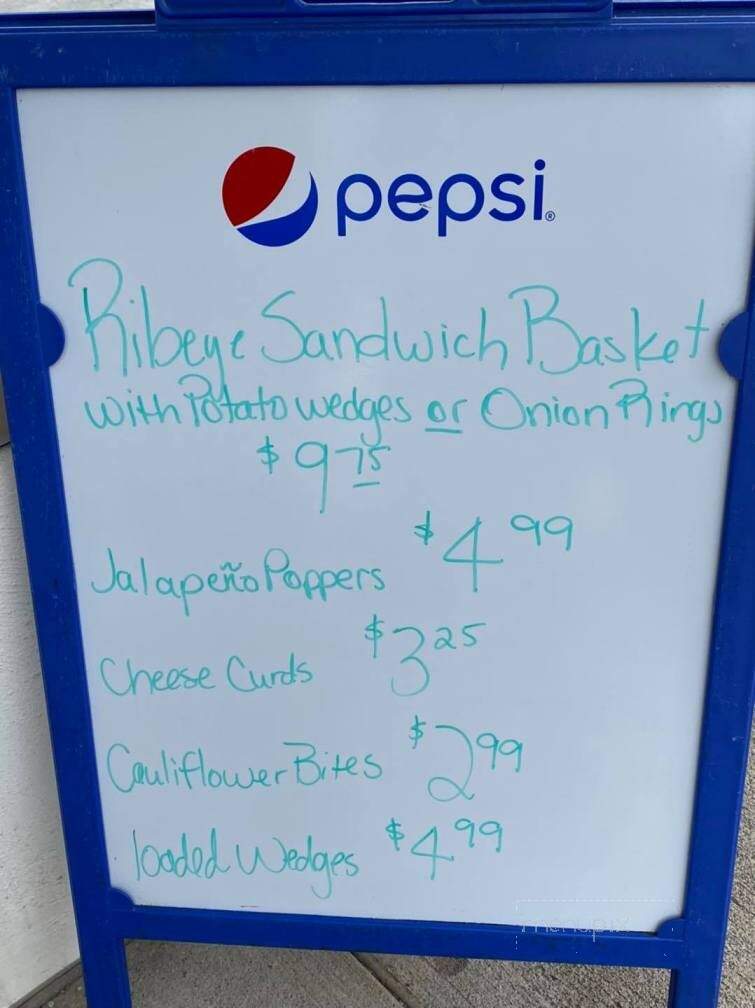 pepsi®
Ribeye Sandwich Basket
with Potato wedges or Onion Rings
$9.75
Jalapeño Poppers $4.99
Cheese Curds $3.25
Cauliflower Bites $2.99
loaded Wedges $4.99
menupix